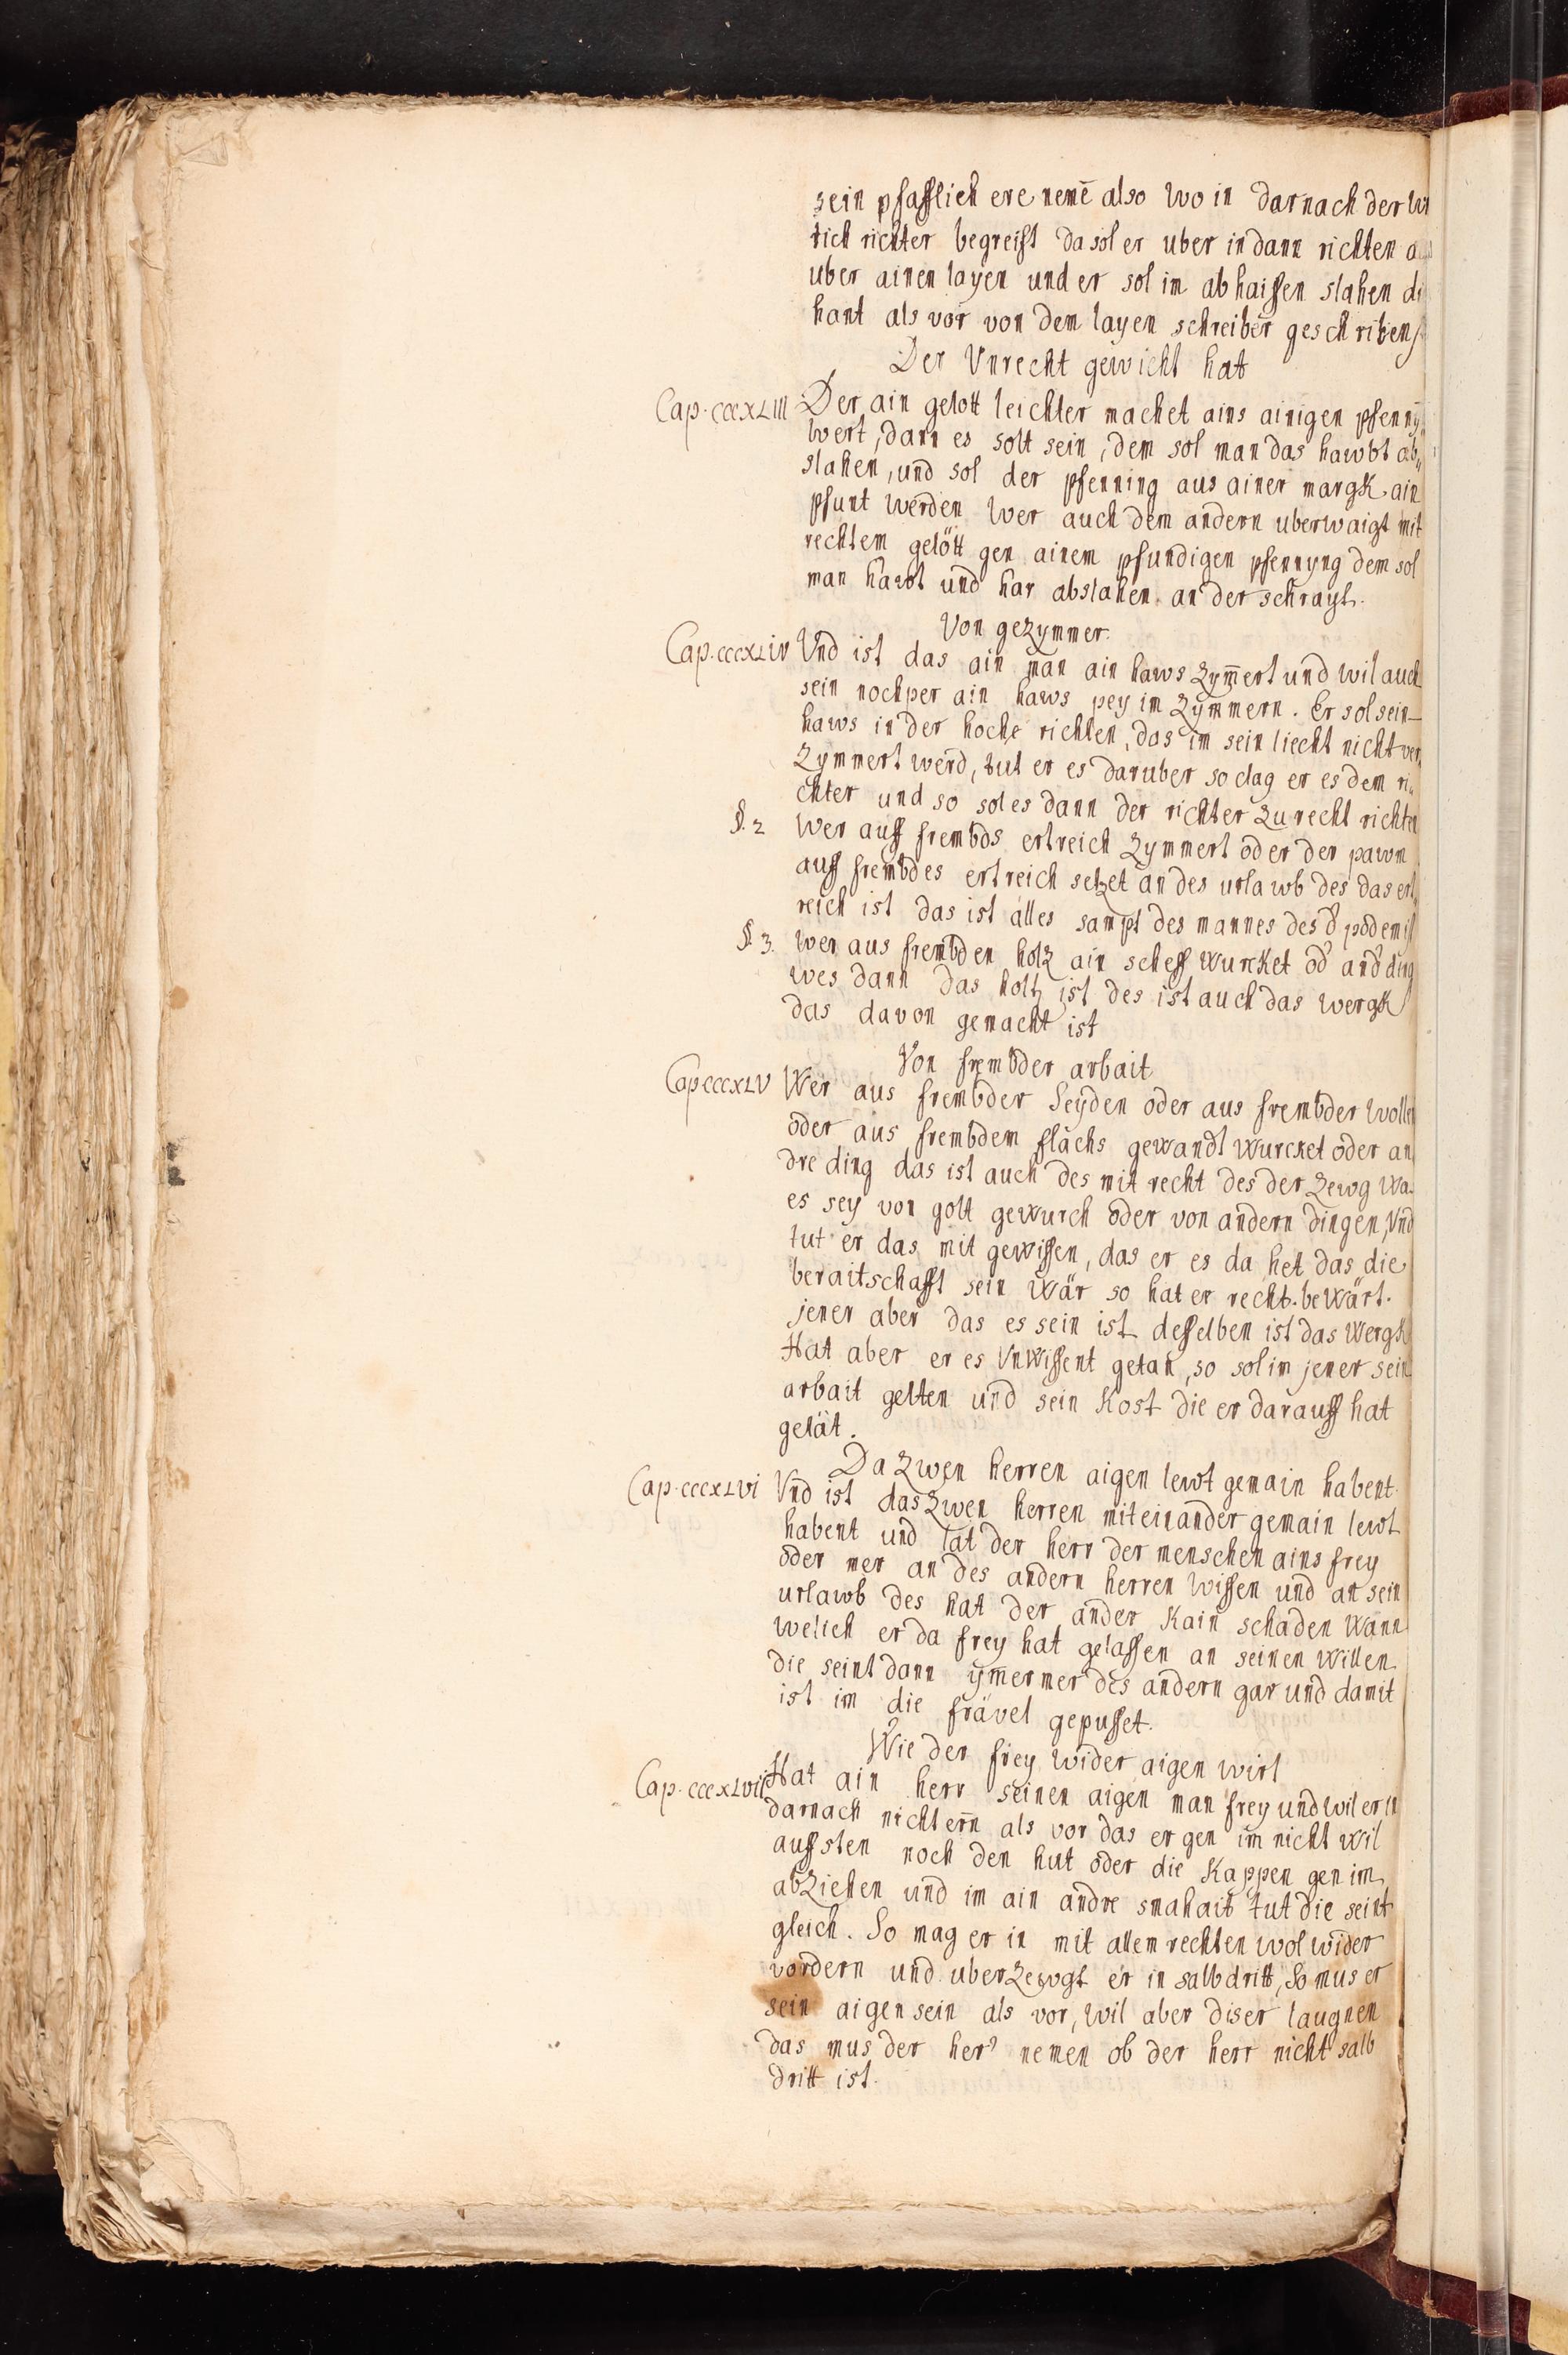 sein pfafflich ere nemē also wo in darnach der
tich richter begreifft da sol er uber in dann richten
uber ainen layen und er sol im ab haissen slahen di
hant als vor von dem layen schreiber geschriben
Der Vnrecht gewicht hat
Cap. cccXLIII Der ain gelott leichter machet ains ainigen pfenny„
wert, dann es solt sein, dem sol man das hawbt ab„
slahen, und sol der pfenning aus ainer margk ain
pfunt werden wer auch dem andern uberwaigt mit
rechtem gelött gen ainem pfundigen pfennyng dem sol
man hawt und har abslahen an der schrayt.
Von gezymmer.
Cap. cccXLiv Vnd ist das ain man ain haws zym̄ert und wil auch
sein nochper ain haws pey im zymmern. Er sol sein
haws in der hoche richten, das im sein liecht nicht ver„
zymmert werd, tut er es daruber so clag er es dem ri„
chter und so sol es dann der richter zu recht richten
§. 2 Wer auff frembds ertreich zymmert oder der pawm
auff frembdes ertreich setzet an des urlawb des das ert„
reich ist das ist alles sampt des mannes des d' podem ist
§. 3. Wer aus frembden holz ain scheff wurcket od' and' ding
wes dann das holtz ist des ist auch das wergk
das davon gemacht ist
Von frembder arbait
Cap cccXLV Wer aus frembder Seyden oder aus frembder wollen
oder aus frembdem flachs gewandt wurcket oder an
dre ding das ist auch des mit recht des der zewg wa
es sey von golt gewurch oder von andern dingen, Vnd
tut er das mit gewissen, das er es da het das die
beraitschafft sein wär so hat er recht. bewärt.
jener aber das es sein ist desselben ist das wergk
Hat aber er es Vnwissent getan, so sol im jener sein
arbait gelten und sein kost die er darauff hat
gelät.
Da zwen herren aigen lewt gemain habent
Cap. cccXLvi Vnd ist das zwen herren miteinander gemain lewt
habent und lat der herr der menschen ains frey
oder mer an des andern herren wissen und an sein
urlawb des hat der ander kain schaden wann
welich er da frey hat gelassen an seinen willen
die seint dann ym̄ermer des andern gar und damit
ist im die frävel gepusset.
Wie der frey wider aigen wirt
Cap. cccXLvii Hat ain herr seinen aigen man frey und wil er in
darnach nicht ern̄ als vor das er gen im nicht wil
auffsten noch den hut oder die kappen gen im
abziehen und im ain andre smahait tut die seint
gleich. So mag er in mit allem rechten wol wider
vordern und uberzewgt er in salbdritt, So mus er
sein aigen sein als vor, wil aber diser laugnen
das mus der her' nemen ob der herr nicht salb
dritt ist.